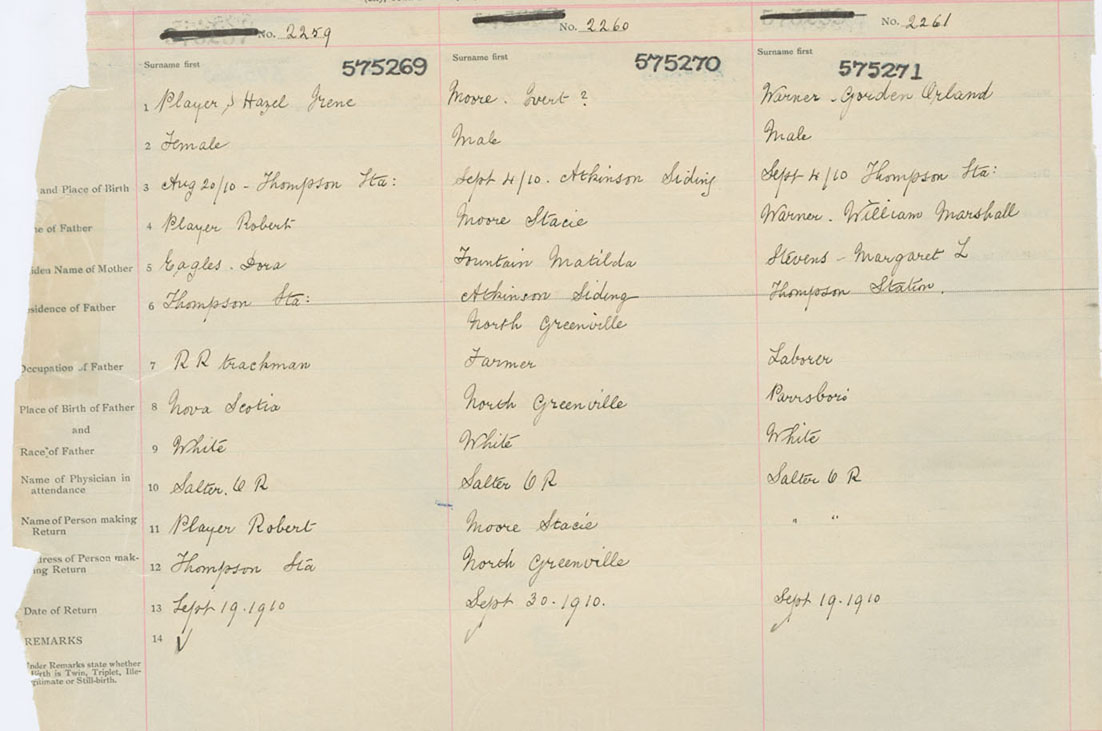 No. 2259 No. 2260 No. 2261
Surname first Surname first Surname first
575269 575270 575271
1 Player, Hazel Irene Moore. Evert ? Warner - Gorden Orland
2 Female Male Male
and Place of Birth 3 Aug 20/10 - Thompson Sta: Sept 4/10. Atkinson Siding Sept 4/10 Thompson Sta:
of Father 4 Player Robert Moore Stacie Warner. William Marshall
iden Name of Mother 5 Eagles. Dora Fountain Matilda Stevens - Margaret L
sidence of Father 6 Thompson Sta: Atkinson Siding Thompson Station.
North Greenville
Occupation of Father 7 R R trackman Farmer Laborer
Place of Birth of Father 8 Nova Scotia North Greenville Parrsboro
and
Race of Father 9 White White White
Name of Physician in
attendance 10 Salter. C R Salter C R Salter C R
Name of Person making
Return 11 Player Robert Moore Stacie " "
dress of Person mak-
ing Return 12 Thompson Sta North Greenville
Date of Return 13 Sept 19.1910 Sept 30.1910. Sept 19.1910
REMARKS 14
nder Remarks state whether
Birth is Twin, Triplet, Ille-
gitimate or Still-birth.